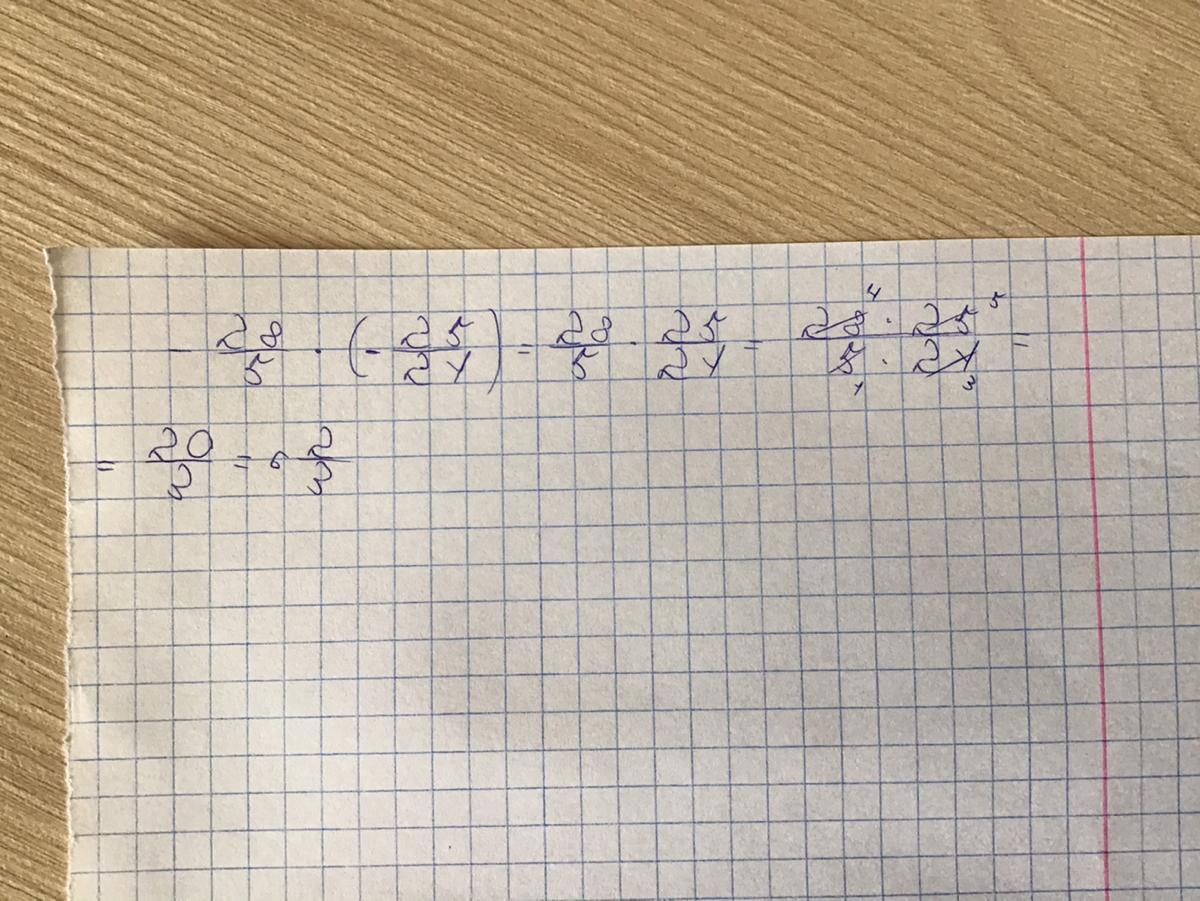 - 28/5 · (- 25/21) = 28/5 · 25/21 = 28⁴ · 25⁵ / 5₁ · 21₃ =
= 20/3 = 6 2/3